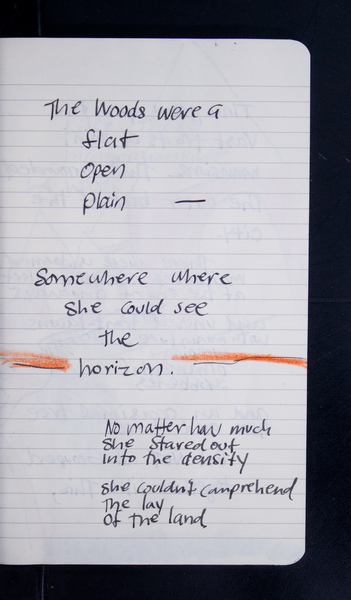 The Woods were a
flat
open
plain —
Somewhere where
she could see
the
horizon.
No matter how much
she stared out
into the density
she couldn't comprehend
the lay
of the land